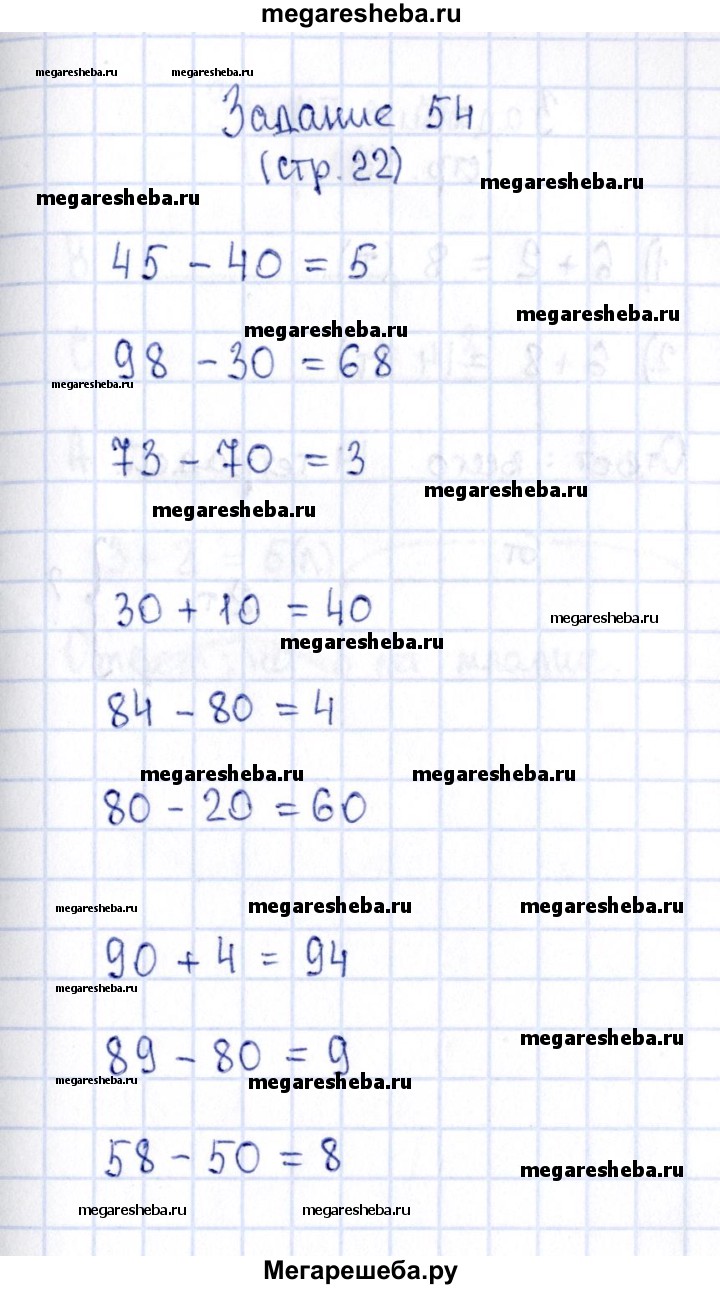 megaresheba.ru
megaresheba.ru megaresheba.ru
Задание 54
(стр. 22)
megaresheba.ru
megaresheba.ru
45 - 40 = 5
megaresheba.ru
megaresheba.ru
98 - 30 = 68
megaresheba.ru
73 - 70 = 3
megaresheba.ru
megaresheba.ru
30 + 10 = 40
megaresheba.ru
megaresheba.ru
84 - 80 = 4
megaresheba.ru megaresheba.ru
80 - 20 = 60
megaresheba.ru megaresheba.ru megaresheba.ru
90 + 4 = 94
megaresheba.ru
megaresheba.ru
89 - 80 = 9
megaresheba.ru megaresheba.ru
58 - 50 = 8
megaresheba.ru
megaresheba.ru megaresheba.ru
Мегарешеба.ру